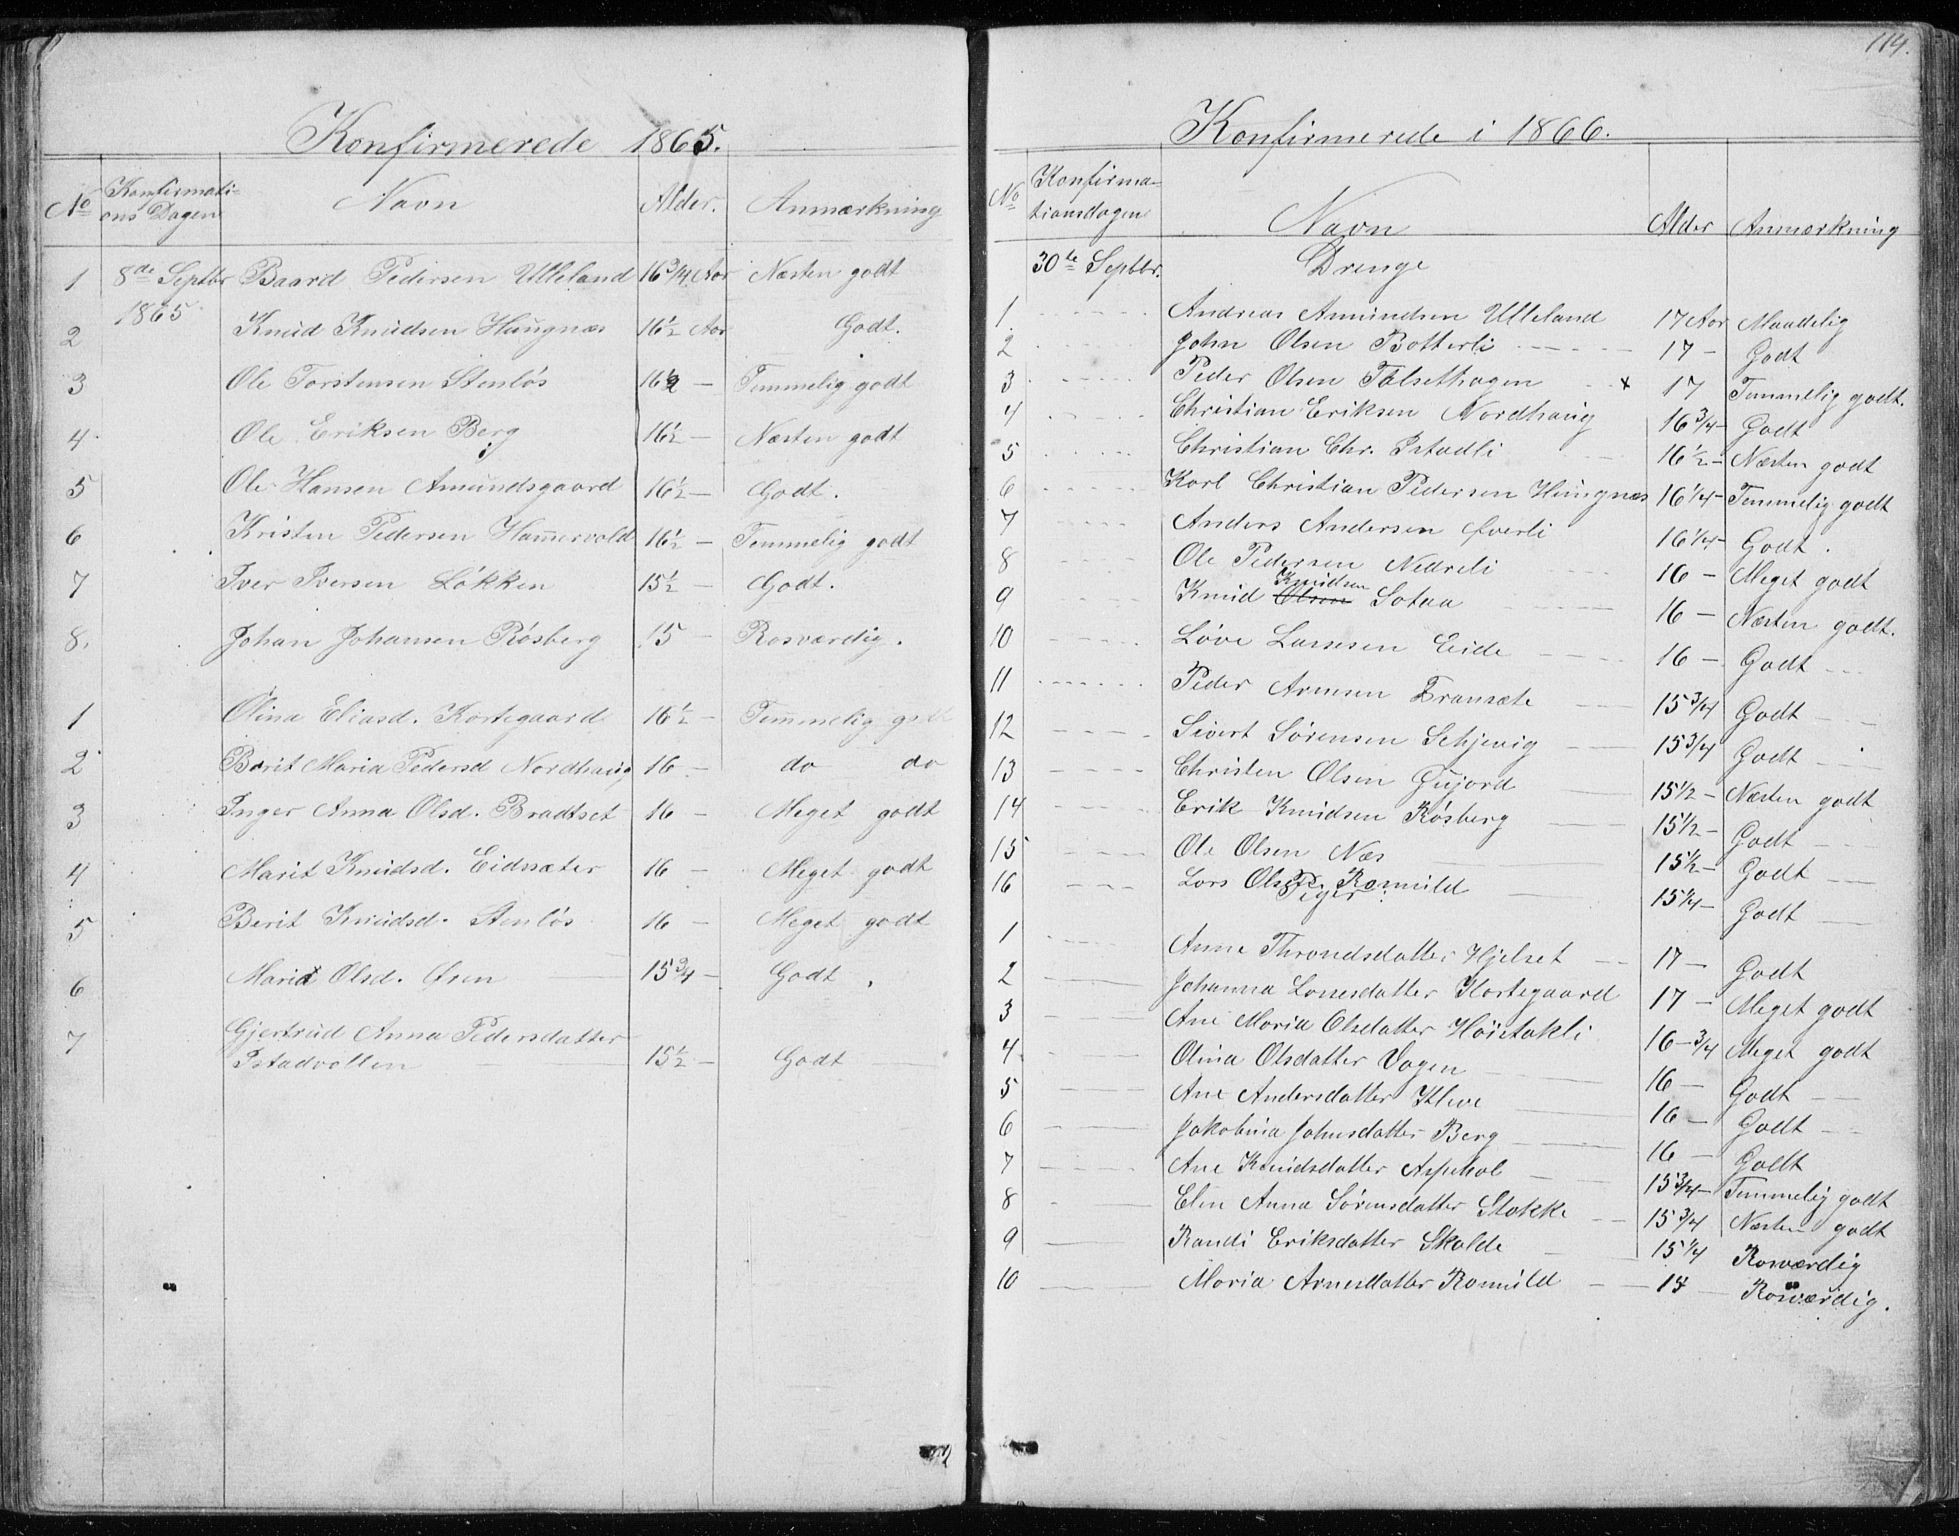 Konfirmerede 1865.
No Konfirmati- Navn Alder. Anmærkning
ons Dagen
1 8de Septbr Baard Pedersen Ulleland 16 3/4 Aar Næsten godt
1865
2 Knud Knudsen Haugnæs 16 1/2 Aar Godt.
3 Ole Torstensen Stenløs 16 1/2 — Temmelig godt
4 Ole Eriksen Berg 16 1/2 — Næsten godt
5 Ole Hansen Amundsgaard 16 1/2 — Godt.
6 Kristen Pedersen Hammervold 16 1/2 — Temmelig godt
7 Iver Iversen Løkken 15 1/2 — Godt.
8. Johan Johansen Røsberg 15 — Rosværdig.
1 Olina Eliasd. Kortegaard 16 1/2 — Temmelig godt
2 Berit Maria Pedersd Nordhaug 16 — do do
3 Inger Anna Olsd. Bradtset 16 — Meget godt
4 Marit Knudsd. Eidssæter 16 — Meget godt
5 Berit Knudsd. Stenløs 16 — Meget godt
6 Marit Olsd. Øren 15 3/4 — Godt.
7 Gjertrud Anna Pedersdatter
Istadvollen 15 1/2 — Godt
114.
Konfirmerede i 1866.
No Konfirma- Navn Alder Anmærkning
tionsdagen
30te Septbr. Drenge
1. Andreas Amundsen Ulleland 17 Aar Maadelig
2 John Olsen Botterli 17 — Godt
3 Peder Olsen Talsethagen x 17 Temmelig godt.
4 Christian Eriksen Nordhaug 16 3/4 — Godt
5 Christian Chr. Istadli 16 1/2 — Næsten godt
6 Karl Christian Pedersen Haugnæs 16 1/4 — Temmelig godt
7 Anders Andersen Øverli 16 1/4 — Godt.
8 Ole Pedersen Nedreli 16 — Meget godt
9 Knud Olsen Knudsen Sotaa 16 — Næsten godt.
10 Løve Larsesen Eide 16 — Godt
11 Peder Arnesen Transæte 15 3/4 Godt
12 Sivert Sørensen Schjevig 15 3/4 Godt
13 Christen Olsen Øujord 15 1/2 — Næsten godt
14 Erik Knudsen Røsberg 15 1/2 — Godt
15 Ole Olsen Næs 15 1/2 — Godt
16 Lars Olsen Romuld 15 1/4 — Godt
Piger.
1 Anne Throndsdatter Hjelset 17 — Godt
2 Johanna Larsesdatter Kortegaard 17 — Meget godt
3 Ane Maria Olsdatter Høistakli 16 — 3/4 Meget godt
4 Olina Olsdatter Vagen 16 — Godt
5 Ane Andersdatter Kleve 16 — Godt
6 Jakobina Johnsdatter Berg 16 — Godt
7 Ane Knudsdatter Aspehol 15 3/4 — Temmelig godt
8 Elen Anna Sørensdatter Stokke 15 3/4 Næsten godt
9 Randi Eriksdatter Skalde 15 1/4 Rosværdig
10 Maria Arnesdatter Romuld 15 — Rosværdig.